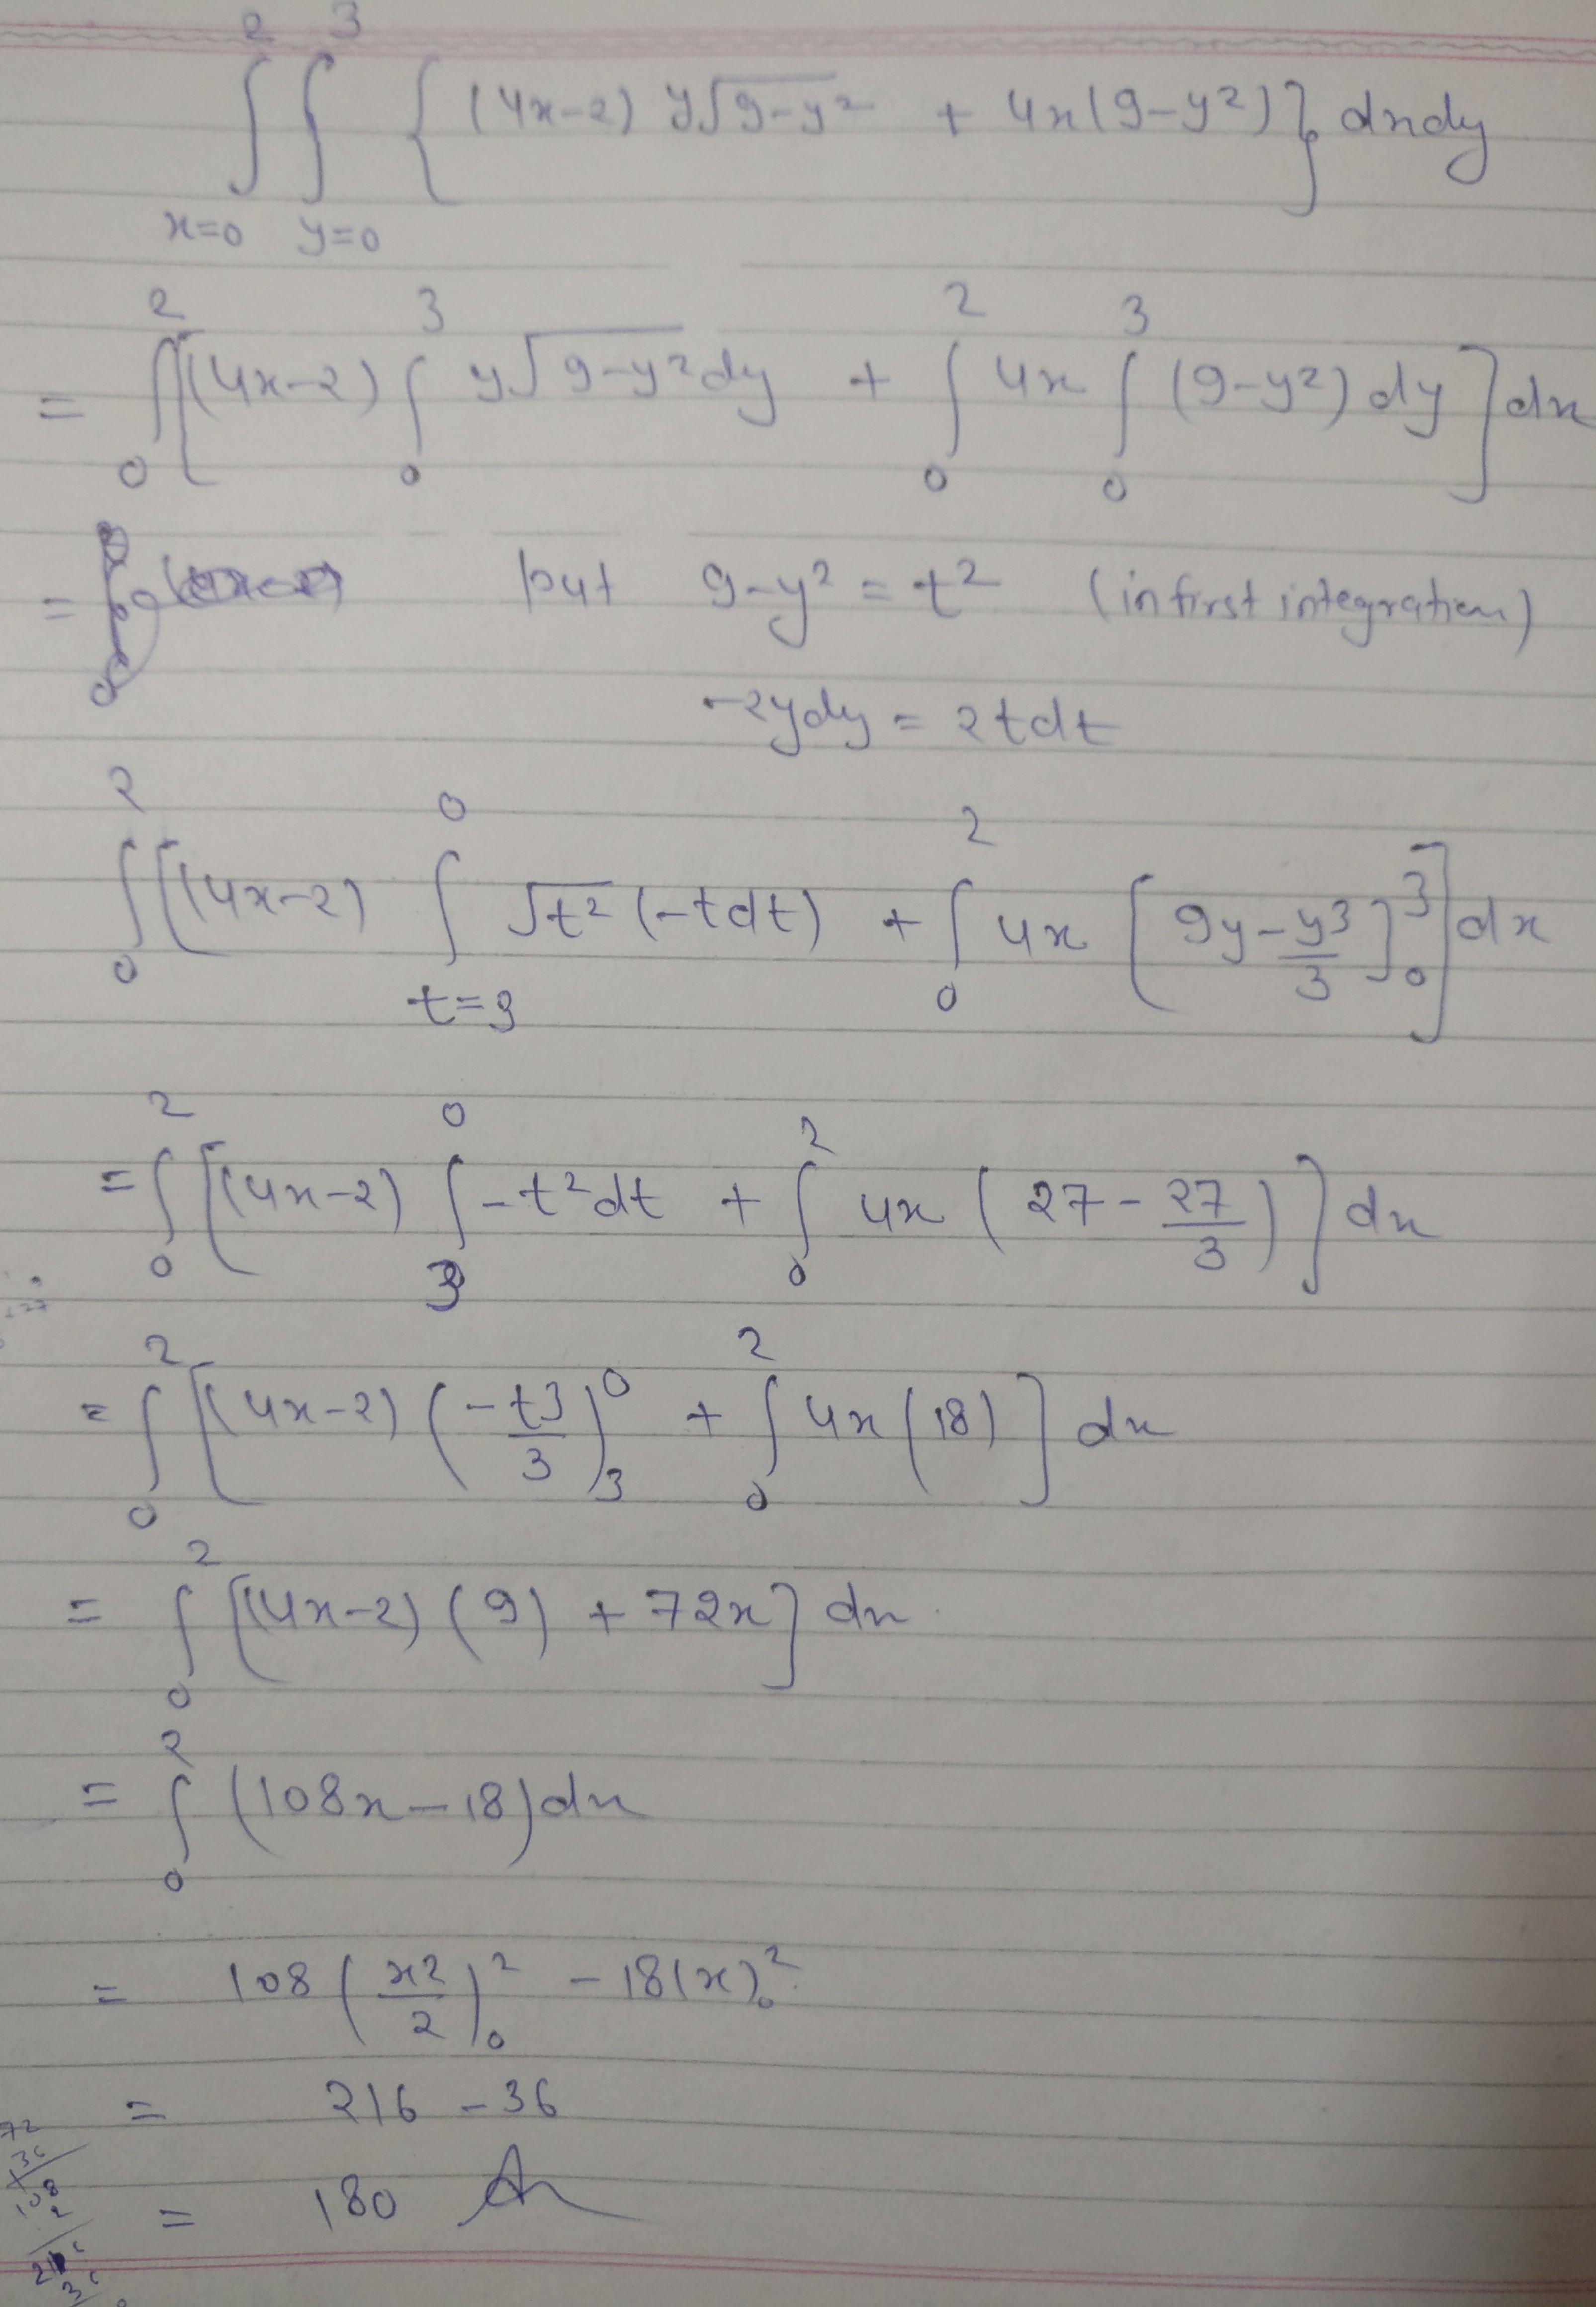 ∫_{x=0}^{2} ∫_{y=0}^{3} { (4x-2) y√(9-y²) + 4x(9-y²) } dxdy
= ∫_0^2 [ (4x-2) ∫_0^3 y√(9-y²) dy + ∫_0^2 4x ∫_0^3 (9-y²) dy ] dx
= put 9-y² = t² (in first integration)
-2ydy = 2tdt
∫_0^2 [ (4x-2) ∫_{t=3}^0 √t² (-tdt) + ∫_0^2 4x [ 9y - y³/3 ]_0^3 ] dx
= ∫_0^2 [ (4x-2) ∫_3^0 -t²dt + ∫_0^2 4x ( 27 - 27/3 ) ] dx
= ∫_0^2 [ (4x-2) ( -t3/3 )_3^0 + ∫_0^2 4x (18) ] dx
= ∫_0^2 [ (4x-2) (9) + 72x ] dx
= ∫_0^2 (108x - 18) dx
= 108 ( x²/2 )_0^2 - 18(x)_0^2
= 216 - 36
= 180
72
36
108
2